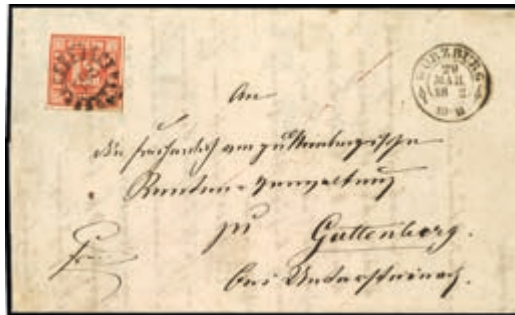 WÜRZBURG
29
MAR
An
die Freiherrlich von zu Guttenbergische
Renten-Verwaltung
zu
Guttenberg.
bei Untersteinach.